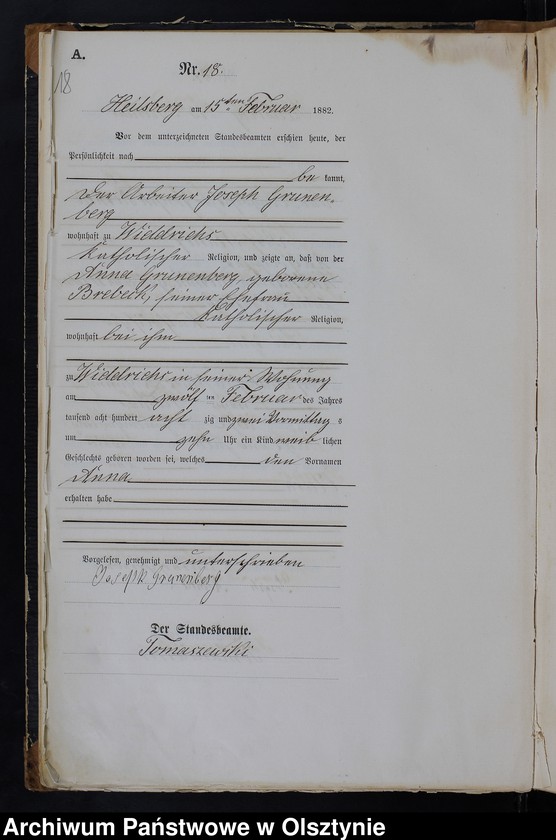 A.
18
Nr. 18.
Heilsberg am 15ten Februar 1882.
Vor dem unterzeichneten Standesbeamten erschien heute, der
Persönlichkeit nach
be kannt,
der Arbeiter Joseph Grunen-
berg
wohnhaft zu Widdrichs
katholischer Religion, und zeigte an, daß von der
Anna Grunenberg, geborene
Brebeck, seiner Ehefrau
katholischer Religion,
wohnhaft bei ihm
zu Widdrichs in seiner Wohnung
am zwölf ten Februar des Jahres
tausend acht hundert acht zig und zwei Vormittag s
um zehn Uhr ein Kind weib lichen
Geschlechts geboren worden sei, welches den Vornamen
Anna
erhalten habe
Vorgelesen, genehmigt und unterschrieben
Joseph Grunenberg
Der Standesbeamte.
Tomaszewski
Archiwum Państwowe w Olsztynie